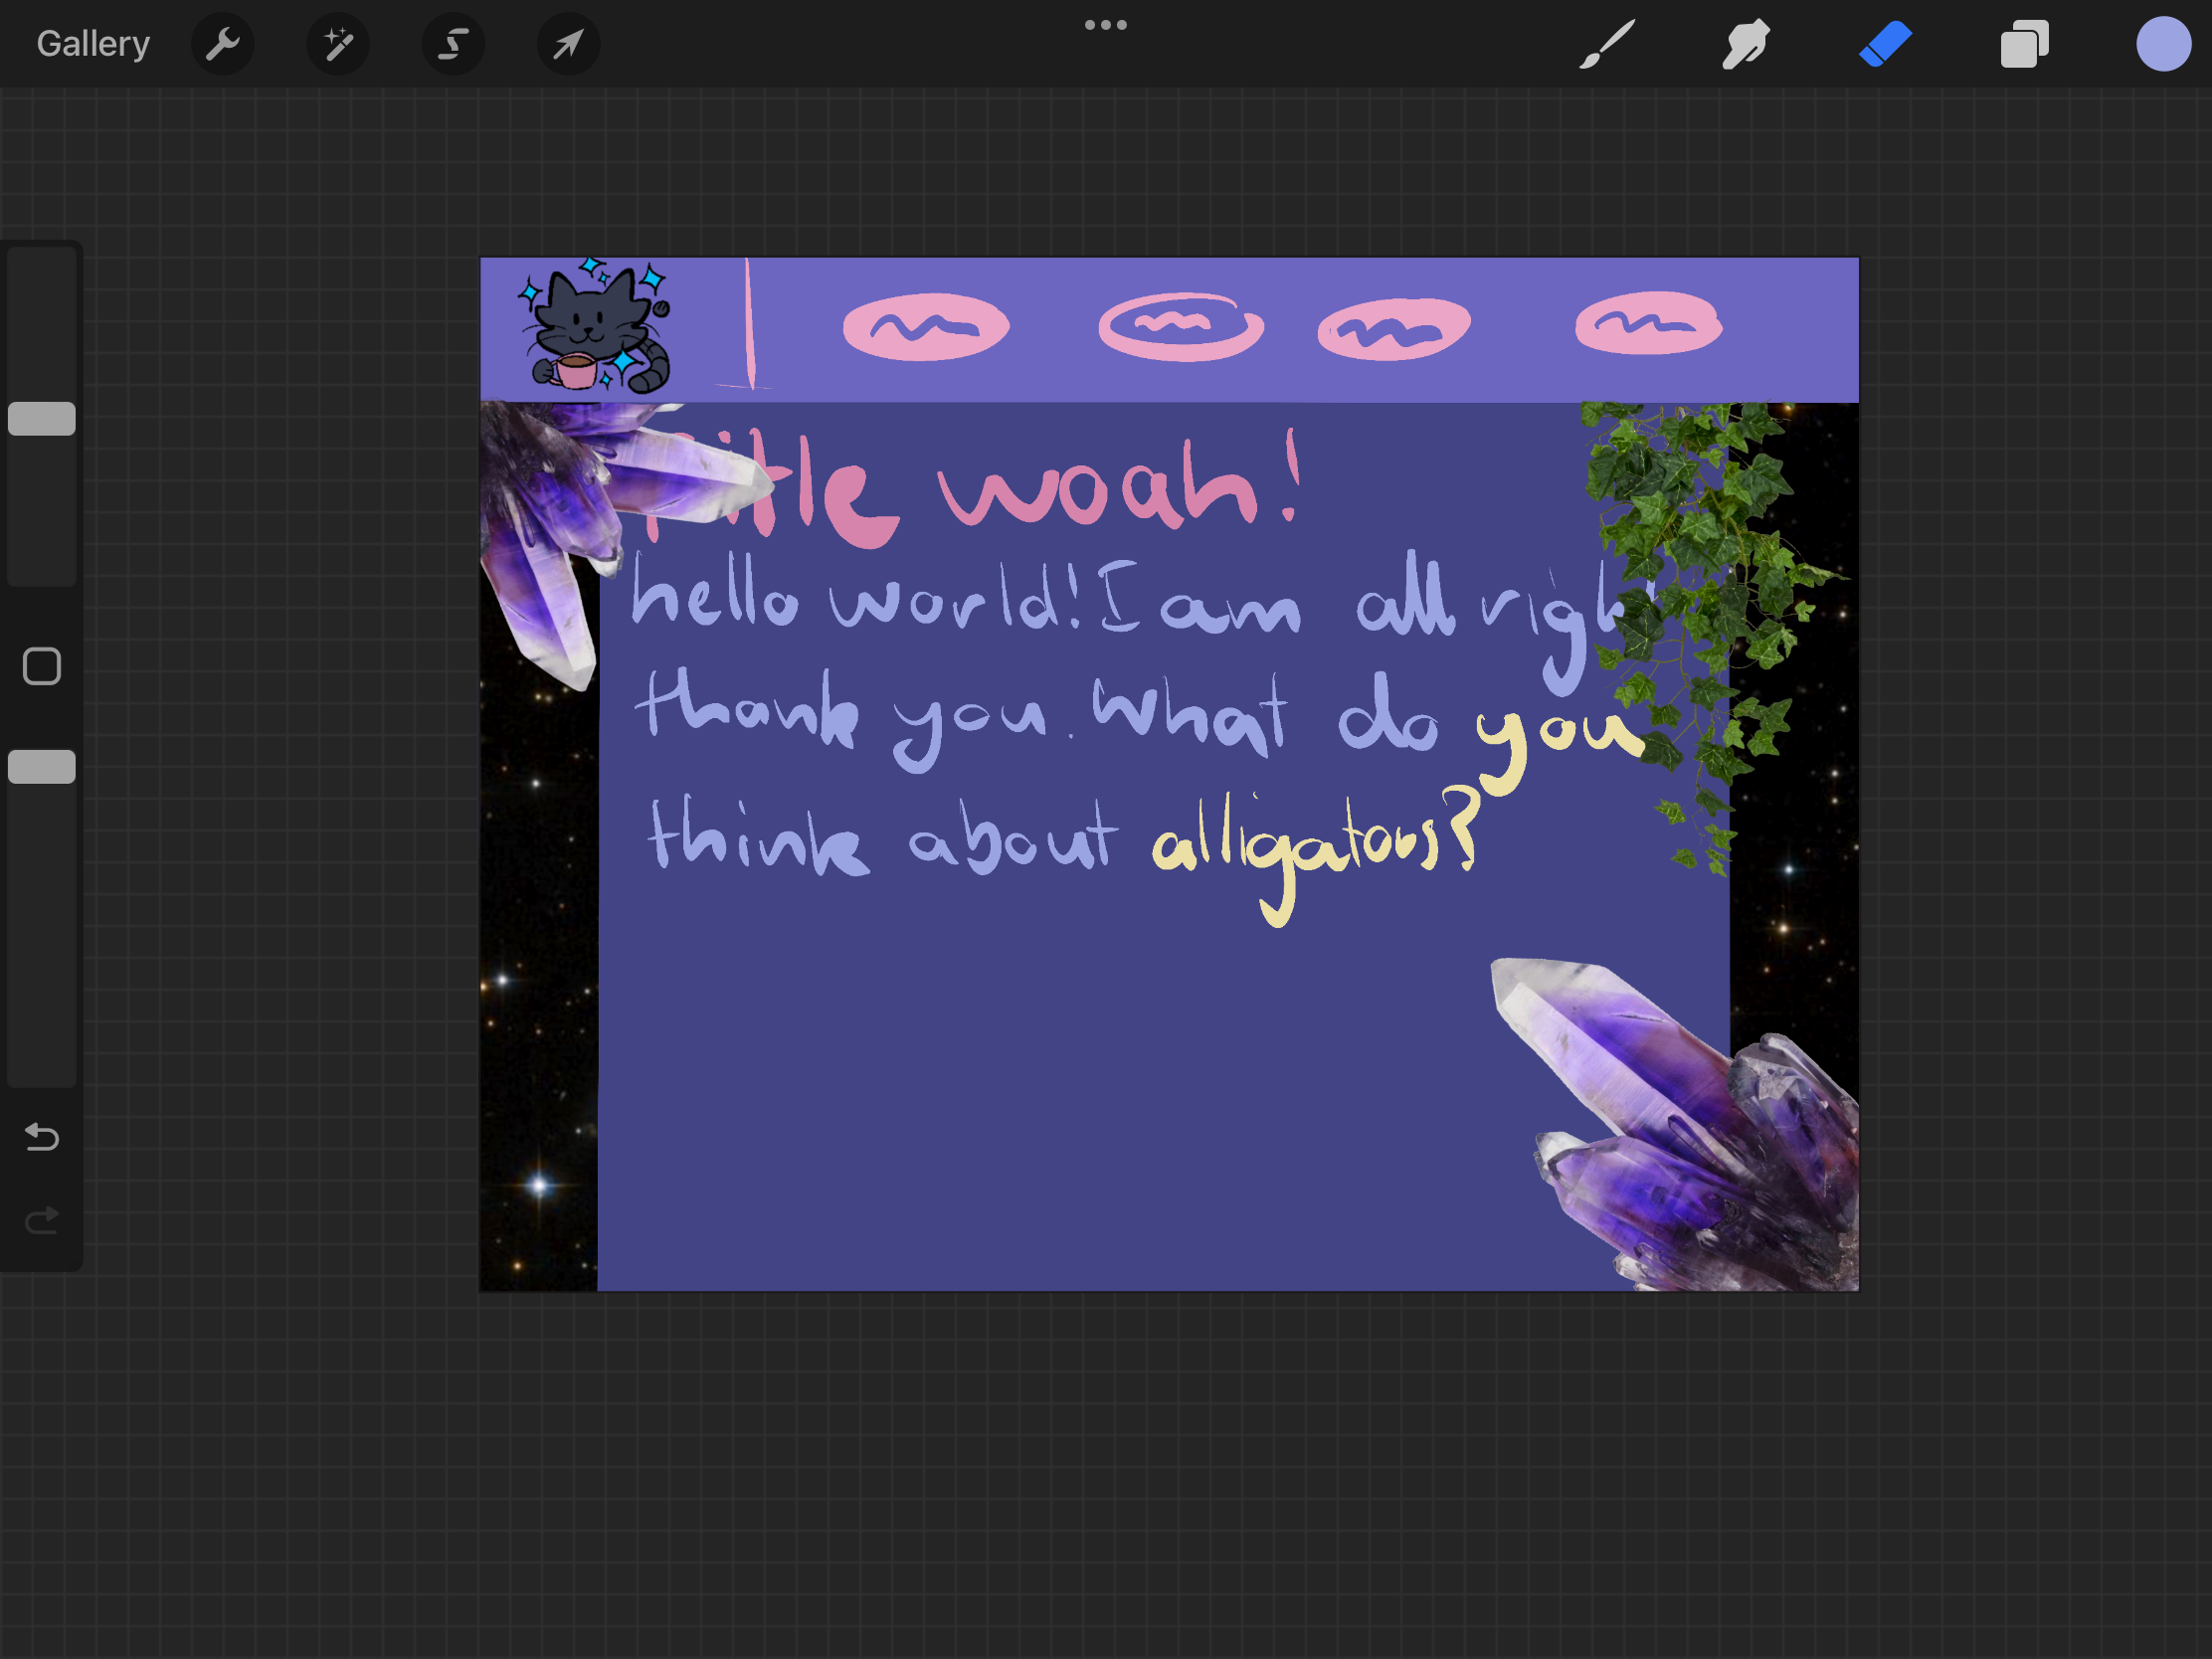 Gallery
Title woah!
hello world! I am all right
thank you. What do you
think about alligators?